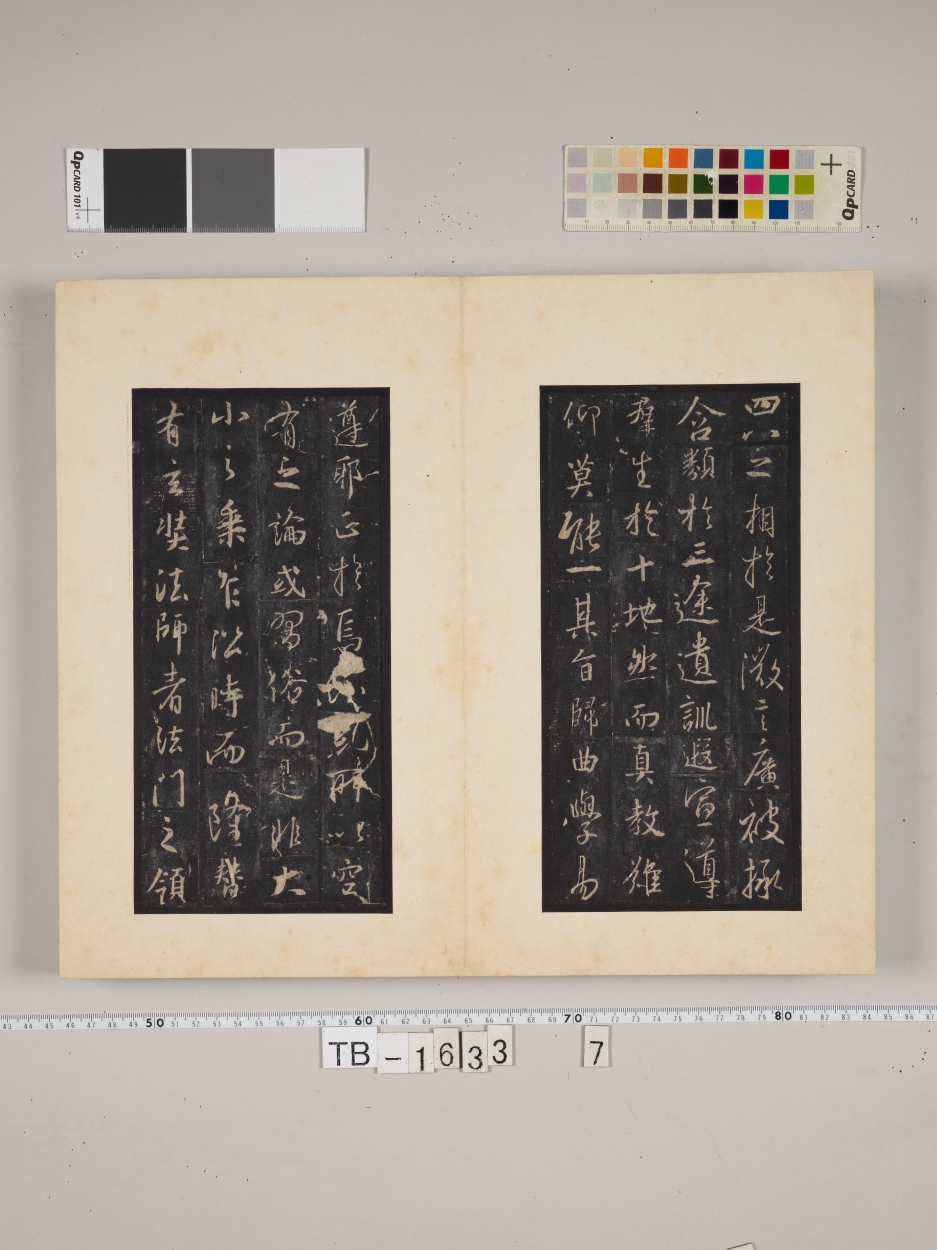 四八之相於是微言廣被拯
含類於三途遺訓遐宣導
羣生於十地然而真教難
仰莫能一其旨歸曲學易
遵耶正於焉紛糺所以空
有之論或習俗而是非大
小之乘乍沿時而隆替
有玄奘法師者法門之領
QPCARD 101 v4
QPCARD 201
10 20 30 40 50 60 70 80 90 100 110
43 44 45 46 47 48 49 50 51 52 53 54 55 56 57 58 59 60 61 62 63 64 65 66 67 68 69 70 71 72 73 74 75 76 77 78 79 80 81 82 83 84 85 86 87
TB-1633 7